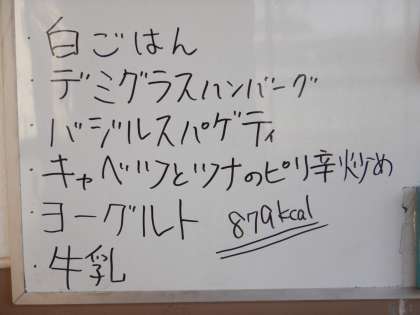 ・白ごはん
・デミグラスハンバーグ
・バジルスパゲティ
・キャベツとツナのピリ辛炒め
・ヨーグルト 879kcal
・牛乳